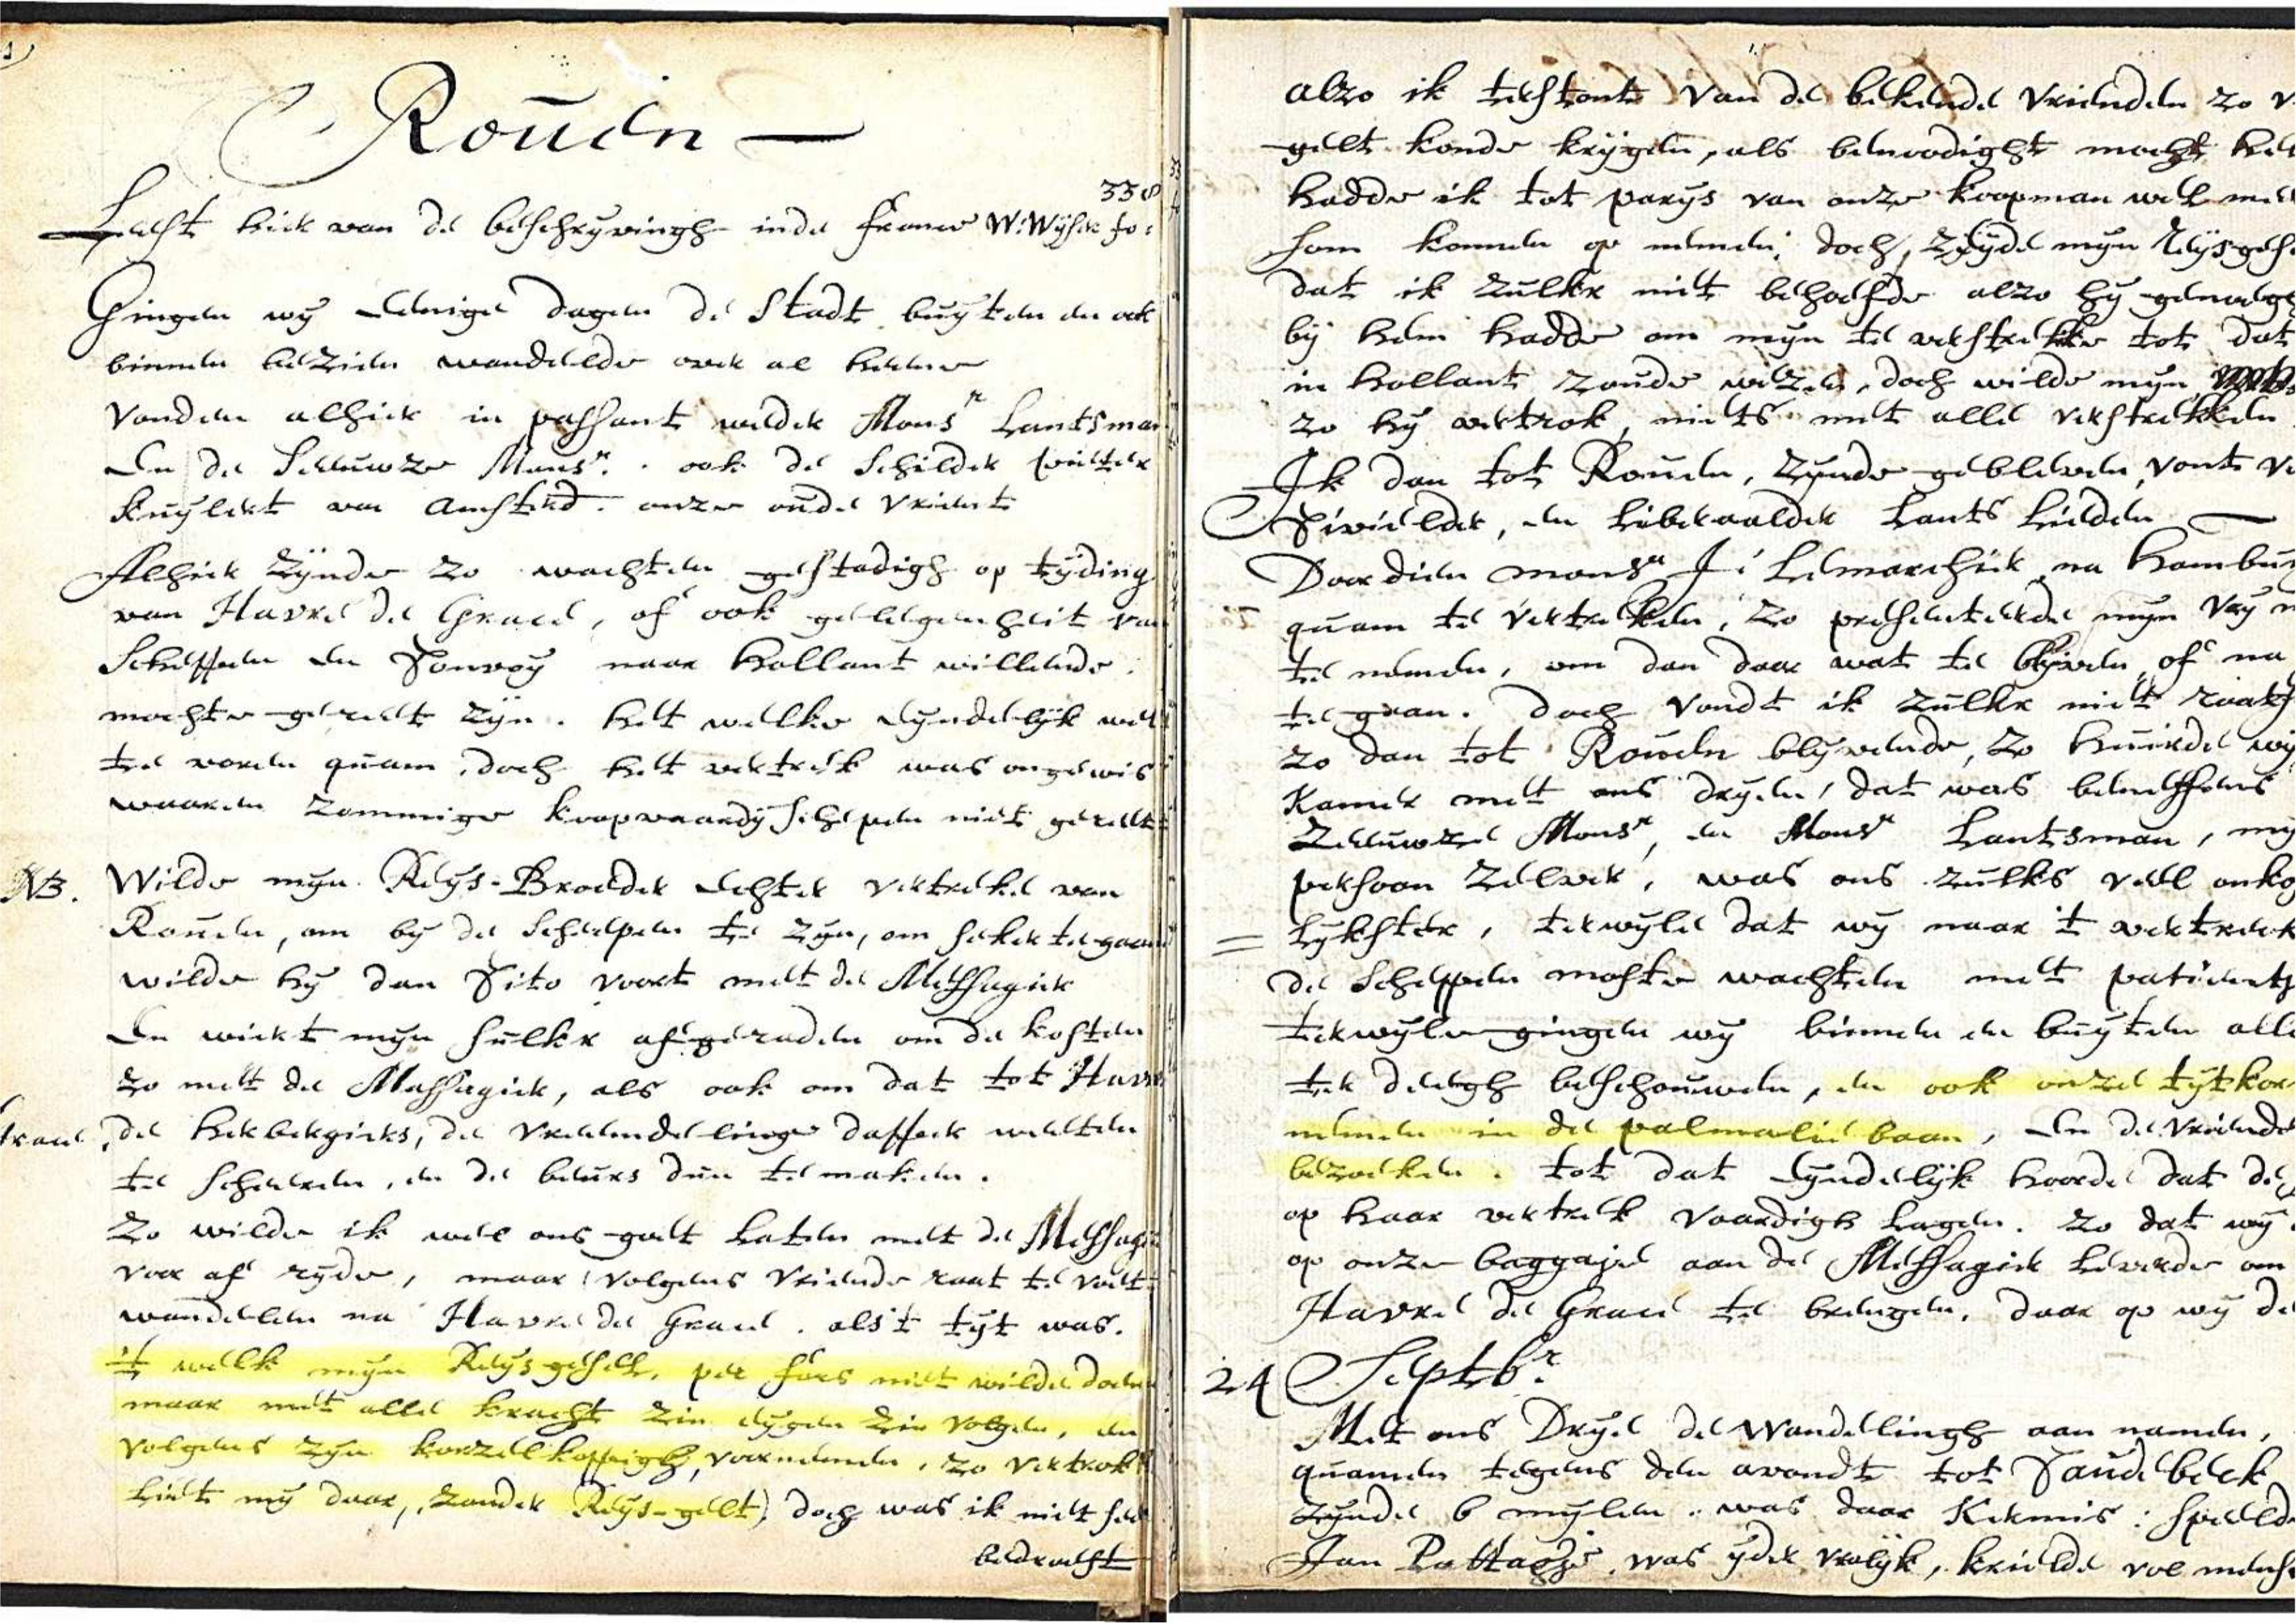 Rouen
338
Leest hier van de beschryvingh inde Franse W:Wyser fo:
Gingen wy eenige dagen de Stadt buyten en ook
binnen bezien wandelde over al heene
vonden alhier in passant weder Monsr Lantsman
En de Zeeuwze Monsr. ook de Schilder pieter
kuylert van Amsterd. onze oude vrient
Alhier zynde zo wachten gestadigh op tyding
van Havre de Grace, of ook gelegenheit van
Scheepen en Convoy naar hollant willende
mochte gereet zyn. het welke eyndelyk wel
te voren quam, doch het vertrek was ongewis
waaren zommige koopvaardy schepen niet gereet
NB. Wilde myn Reys-Broeder echter vertrekke van
Rouen, om by de scheepen te zyn, om seker te gaan
wilde hy dan Cito voort met de Messagier
En wiert myn sulkx afgeraden om de kosten
zo met de Massagier, als ook om dat tot Havre
de herbergiers, de vreemdelinge dapper weeten
te scheeren, en de beurs dun te maken.
Zo wilde ik wel ons goet laten met de Messagier
voor af ryde, maar volgens vriende raat te voet
wandelen na Havre de Grace. als 't tyt was.
't welk myn Reysgeselle, per fors niet wilde doen
maar met alle kracht zin eygen zin volgen, en
volgens zyn korzelkoppigh, voornemen, zo vertrok
liet my daar, zonder Reys-gelt) doch was ik niet seer
bedroeft
alzo ik terstont van de bekende vrienden zo v
gelt konde krygen, als benoodight mocht heb
hadde ik tot parys van onze koopman wel mee
som konnen op nemen, doch, zeyde myn Reysgese
dat ik zulkx niet behoefde alzo hy genoegh
by hem hadde om myn te verstrekke tot dat
in hollant zoude wezen, doch wilde myn
zo hy vertrok, niets met alle verstrekken
Ik dan tot Rouen, zynde gebleven, vont ve
Civielder, en liberaalder Lants Lieden
Doordien monsr J: Lemarchier na hambur
quam te vertreken, zo presenteerde myn vry m
te nemen, om dan daar wat te blyven of na
te gaan. doch vondt ik zulkx niet raats
zo dan tot Rouen blyvende, zo huirde wy
Kamer met ons dryen, dat was beneffens
Zeeuwze Monsr, en Monsr Lantsman, my
persoon zelver, was ons zulks veel onko
lykster, terwyle dat wy naar 't vertrek
de Scheepen moste wachten met patientj
terwyle gingen wy binnen en buyten alle
ter deegh beschouwen, en ook onze tytkor
nemen in de palmalie baan, En de vriende
bezoeken. tot dat eyndelyk hoorde dat de
op haar vertrek vaardigh lagen. zo dat wy
op onze baggaje aan de Messagier leverde om
Havre de Grace te brengen, daar op wy de
24 Septbr
Met ons Drye de Wandelingh aan namen,
quamen tegens den avondt tot Caudebeck
zynde 6 mylen. was daar Kermis: speelde
Jan Pottagje was yder vrolyk, krielde vol mense